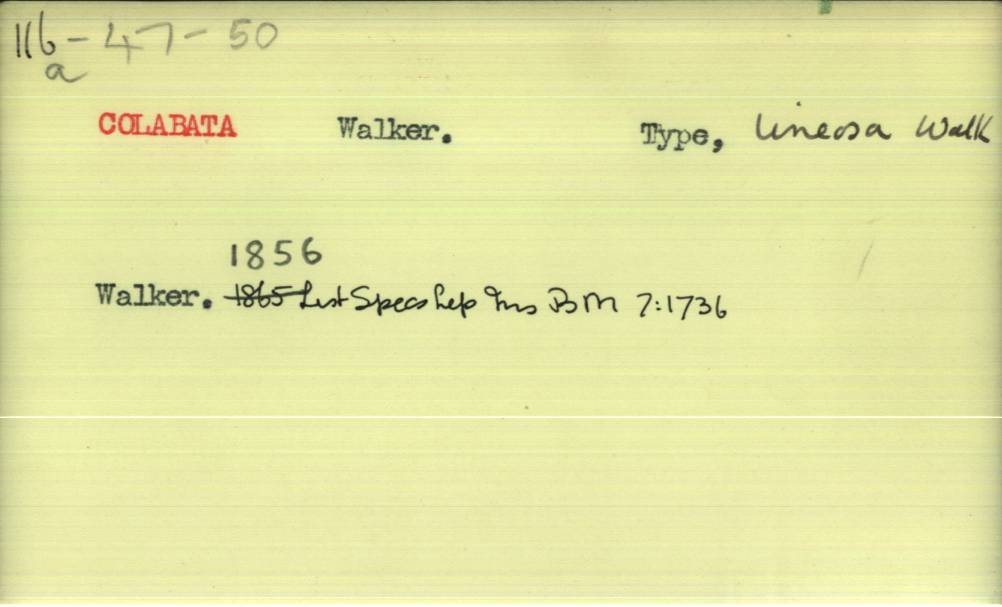 116-47-50
a
COLABATA Walker. Type, lineosa Walk
1856
Walker. 1865 List Specs Lep Ins BM 7:1736